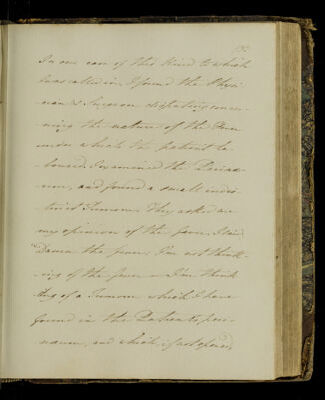 In one case of this kind to which
I was called in, I found the Physi-
cian & Surgeon disputing concer-
ning the nature of the Fever
under which the patient la-
boured. I examined the Perinae-
um, and found a small indis-
tinct Tumour. They asked me
my opinion of the fever, I said
Damn the fever. I'm not think-
ing of the fever — I'm think
ing of a Tumour which I have
found in the Patients peri-
naeum, and which, if not opened,